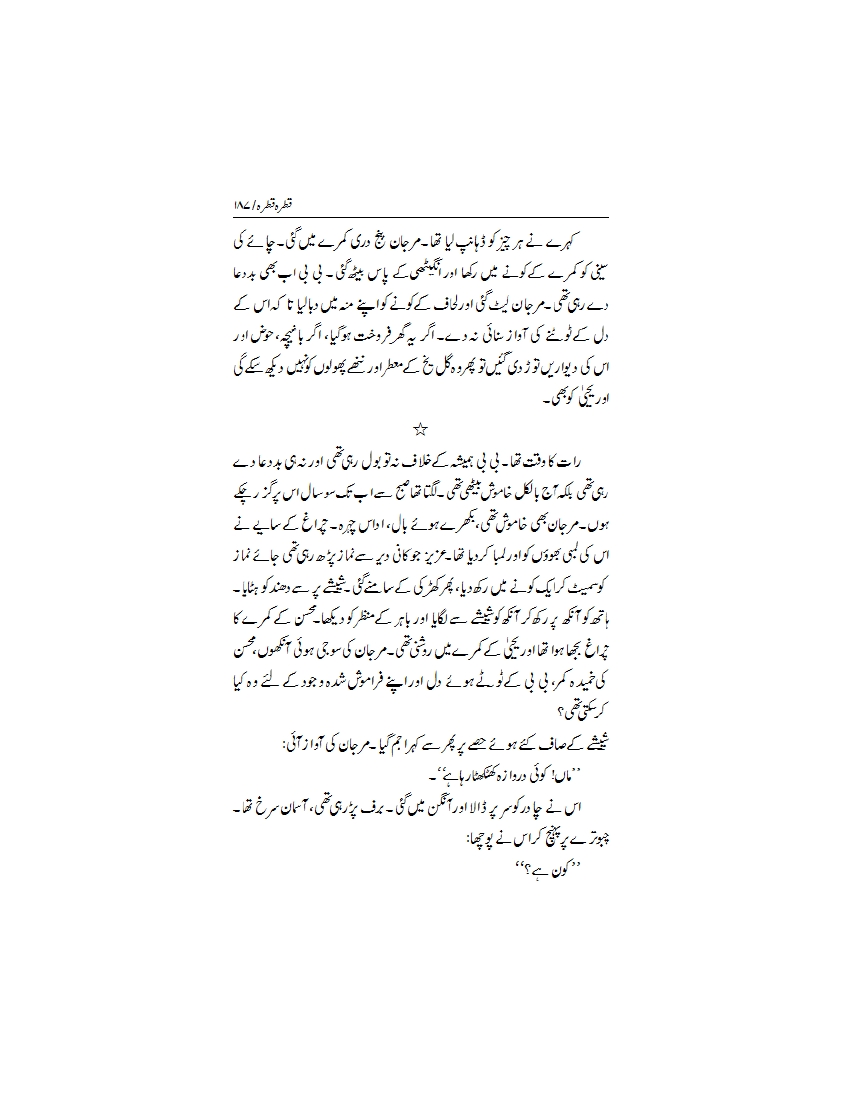 قطرہ قطرہ / ۱۸۷
کہرے نے ہر چیز کو ڈھانپ لیا تھا۔ مرجان پنج دری کمرے میں گئی۔ چائے کی
سینی کو کمرے کے کونے میں رکھا اور انگیٹھی کے پاس بیٹھ گئی۔ بی بی اب بھی بددعا
دے رہی تھی۔ مرجان لیٹ گئی اور لحاف کے کونے کو اپنے منہ میں دبا لیا تا کہ اس کے
دل کے ٹوٹنے کی آواز سنائی نہ دے۔ اگر یہ گھر فروخت ہوگیا، اگر باغیچہ، حوض اور
اس کی دیواریں توڑ دی گئیں تو پھر وہ گل یخ کے معطر اور ننھے پھولوں کو نہیں دیکھ سکے گی
اور یحییٰ کو بھی۔
☆
رات کا وقت تھا۔ بی بی ہمیشہ کے خلاف نہ تو بول رہی تھی اور نہ ہی بددعا دے
رہی تھی بلکہ آج بالکل خاموش بیٹھی تھی۔ لگتا تھا صبح سے اب تک سو سال اس پر گزر چکے
ہوں۔ مرجان بھی خاموش تھی، بکھرے ہوئے بال، اداس چہرہ۔ چراغ کے سایے نے
اس کی لمبی بھوؤں کو اور لمبا کردیا تھا۔ عزیز جو کافی دیر سے نماز پڑھ رہی تھی جائے نماز
کو سمیٹ کر ایک کونے میں رکھ دیا، پھر کھڑکی کے سامنے گئی۔ شیشے پر سے دھند کو ہٹایا۔
ہاتھ کو آنکھ پر رکھ کر آنکھ کو شیشے سے لگایا اور باہر کے منظر کو دیکھا۔ محسن کے کمرے کا
چراغ بجھا ہوا تھا اور یحییٰ کے کمرے میں روشنی تھی۔ مرجان کی سوجی ہوئی آنکھوں، محسن
کی خمیدہ کمر، بی بی کے ٹوٹے ہوئے دل اور اپنے فراموش شدہ وجود کے لئے وہ کیا
کرسکتی تھی؟
شیشے کے صاف کئے ہوئے حصے پر پھر سے کہرا جم گیا۔ مرجان کی آواز آئی:
”ماں! کوئی دروازہ کھٹکھٹا رہا ہے“۔
اس نے چادر کو سر پر ڈالا اور آنگن میں گئی۔ برف پڑ رہی تھی، آسمان سرخ تھا۔
چبوترے پر پہنچ کر اس نے پوچھا:
”کون ہے؟“